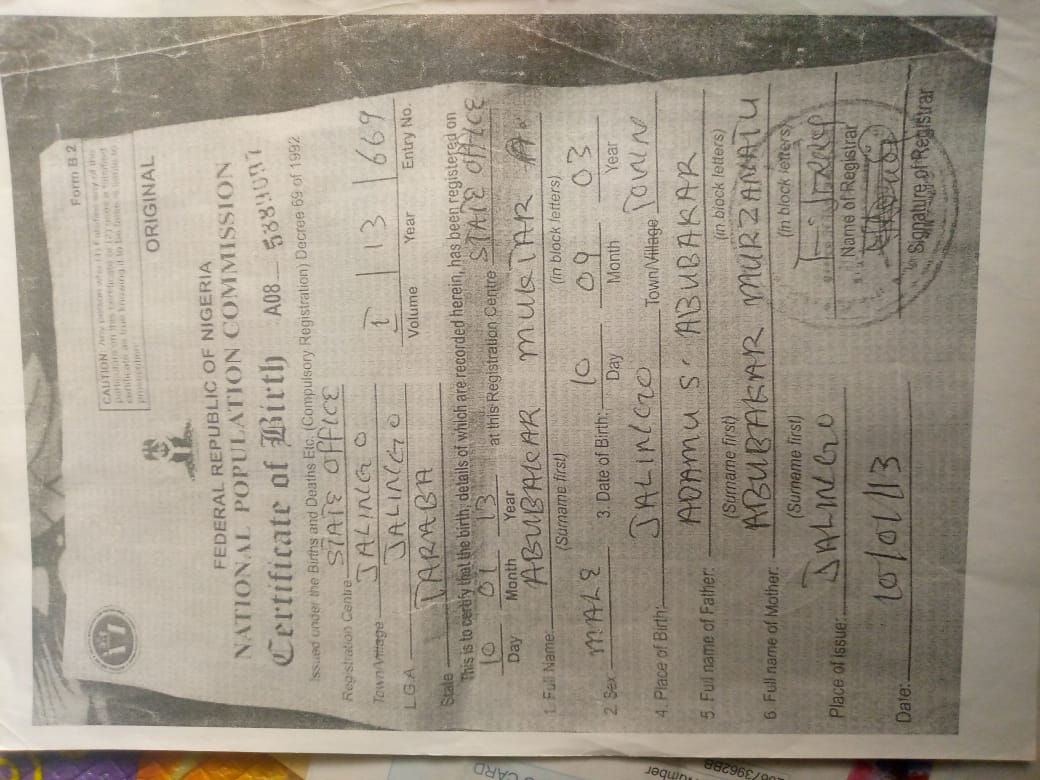 Form B 2
ORIGINAL
FEDERAL REPUBLIC OF NIGERIA
NATIONAL POPULATION COMMISSION
Certificate of Birth A08
Issued under the Births and Deaths Etc. (Compulsory Registration) Decree 69 of 1992
Registration Centre STATE OFFICE
Town/Village JALINGO
L.G.A JALINGO
State TARABA
I 13 669
Volume Year Entry No.
This is to certify that the birth, details of which are recorded herein, has been registered on
10 01 13 at this Registration Centre STATE OFFICE
Day Month Year
1. Full Name: ABUBAKAR MUKTAR A.
(Surname first) (in block letters)
2. Sex MALE 3. Date of Birth: 10 09 03
Day Month Year
4. Place of Birth: JALINGO Town/Village TOWN
5. Full name of Father: ADAMU S. ABUBAKAR
(Surname first) (in block letters)
6. Full name of Mother: ABUBAKAR MURZANATU
(Surname first) (in block letters)
Place of issue: JALINGO
Name of Registrar
Date: 10/01/13
Signature of Registrar
CARD
umber